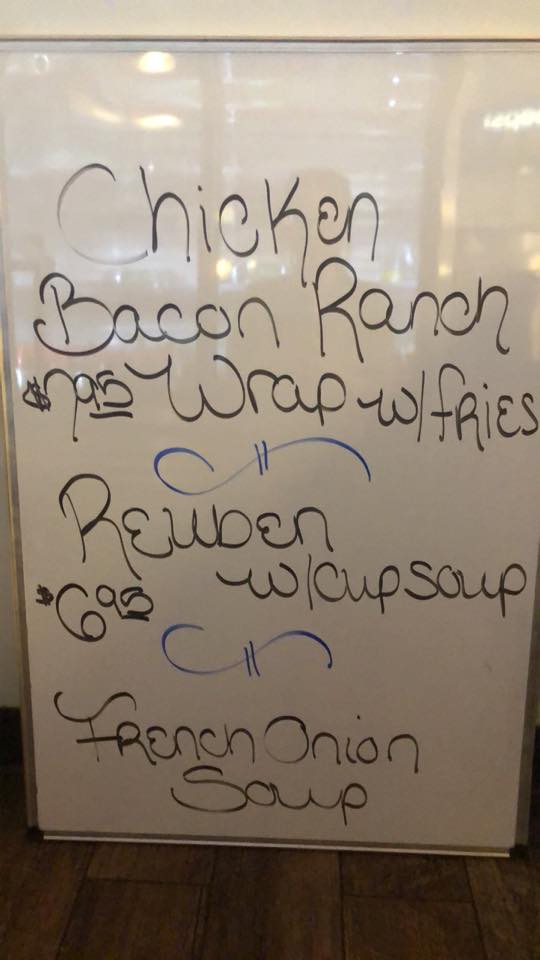 Chicken
Bacon Ranch
$7.95 Wrap w/fries
Reuben
$6.95 w/cup soup
French Onion
Soup